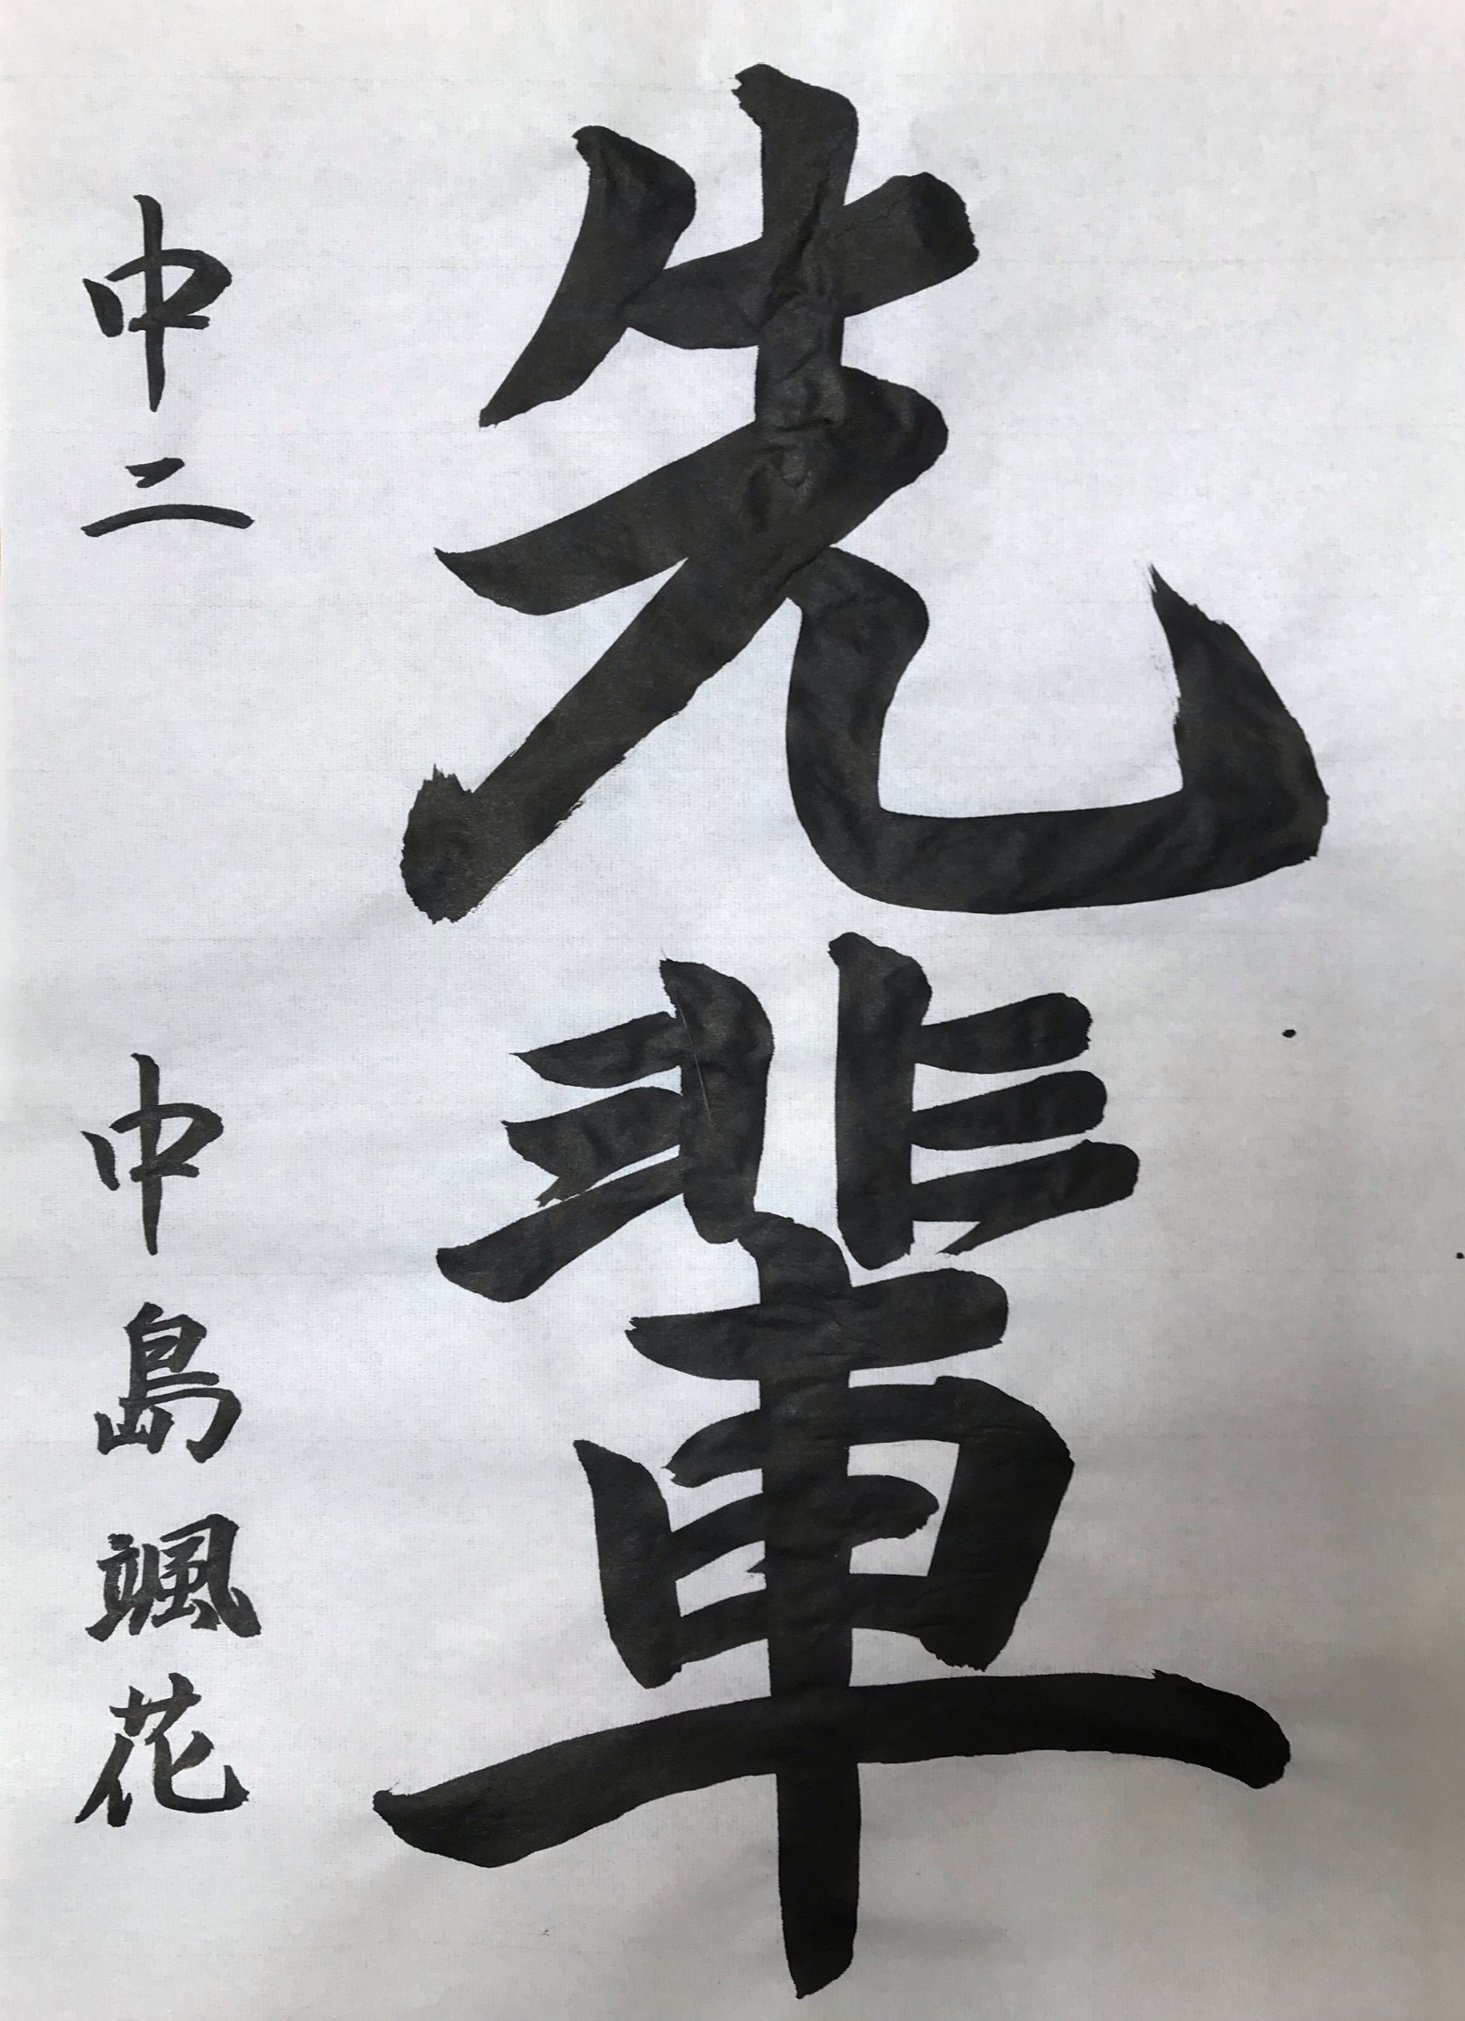 先輩
中二 中島颯花